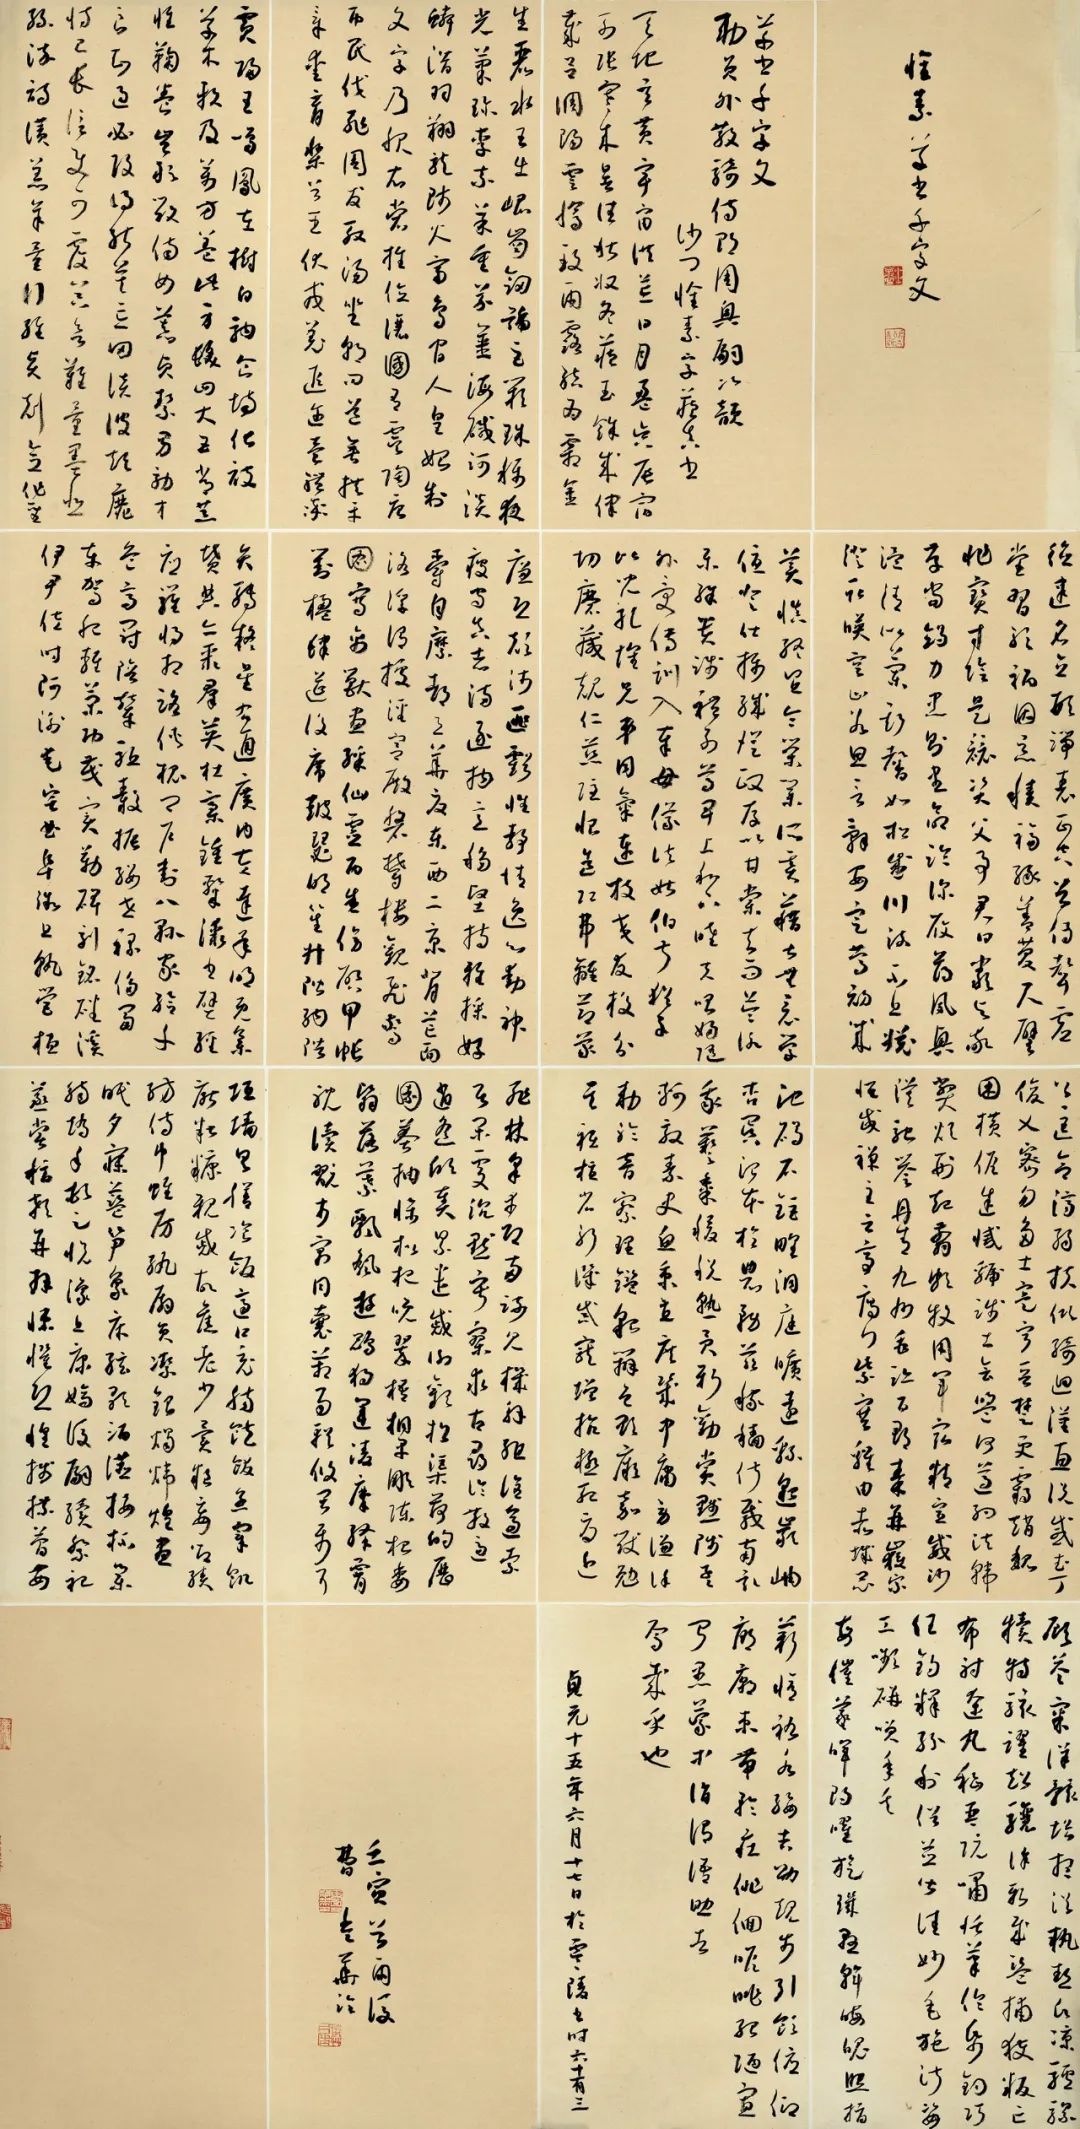 懷素草書千字文
草書千字文
勅員外散騎侍郎周興嗣次韻
沙門懷素字藏真書
天地玄黃宇宙洪荒日月盈昃辰宿
列張寒來暑往秋收冬藏閏餘成律
歲呂調陽雲騰致雨露結為霜金
生麗水玉出崐崗劍號巨闕珠稱夜
光菓珍李柰菜重芥薑海鹹河淡
鱗潛羽翔龍師火帝鳥官人皇始制
文字乃服衣裳推位讓國有虞陶唐
弔民伐罪周發殷湯坐朝問道垂拱平
章愛育黎首臣伏戎羌遐邇壹體率
賓歸王鳴鳳在樹白駒食場化被
草木賴及萬方蓋此身髮四大五常恭
惟鞠養豈敢毀傷女慕貞潔男効才
良知過必改得能莫忘罔談彼短靡
恃己長信使可覆器欲難量墨悲
絲染詩讚羔羊景行維賢剋念作聖
德建名立形端表正空谷傳聲虛
堂習聽禍因惡積福緣善慶尺璧
非寶寸陰是競資父事君曰嚴與敬
孝當竭力忠則盡命臨深履薄夙興
溫凊似蘭斯馨如松之盛川流不息淵
澄取暎容止若思言辭安定篤初誠
美慎終宜令榮業所基籍甚無竟學
優登仕攝職從政存以甘棠去而益詠
樂殊貴賤禮別尊卑上和下睦夫唱婦隨
外受傅訓入奉母儀諸姑伯叔猶子
比兒孔懷兄弟同氣連枝交友投分
切磨箴規仁慈隱惻造次弗離節義
廉退顛沛匪虧性靜情逸心動神
疲守真志滿逐物意移堅持雅操好
爵自縻都邑華夏東西二京背芒面
洛浮渭據涇宮殿盤鬱樓觀飛驚
圖寫禽獸畫綵仙靈丙舍傍啓甲帳
對楹肆筵設席鼓瑟吹笙升階納陛
弁轉疑星右通廣內左達承明既集
墳典亦聚群英杜稾鍾隸漆書壁經
府羅將相路俠槐卿戶封八縣家給千
兵高冠陪輦驅轂振纓世祿侈富
車駕肥輕策功茂實勒碑刻銘磻溪
伊尹佐時阿衡奄宅曲阜微旦孰營桓
公匡合濟弱扶傾綺迴漢惠說感武丁
俊乂密勿多士寔寧晉楚更霸趙魏
困橫假途滅虢踐土會盟何遵約法韓
弊煩刑起翦頗牧用軍最精宣威沙
漠馳譽丹青九州禹跡百郡秦并嶽宗
恒岱禪主云亭鴈門紫塞雞田赤城昆
池碣石鉅野洞庭曠遠綿邈巖岫
杳冥治本於農務茲稼穡俶載南畝
我藝黍稷稅熟貢新勸賞黜陟孟
軻敦素史魚秉直庶幾中庸勞謙謹
勅聆音察理鑑貌辨色貽厥嘉猷勉
其祗植省躬譏誡寵增抗極殆辱近
恥林皋幸即兩疏見機解組誰逼索
居閑處沉默寂寥求古尋論散慮
逍遙欣奏累遣慼謝歡招渠荷的歷
園莽抽條枇杷晚翠梧桐早凋陳根委
翳落葉飄颻遊鵾獨運凌摩絳霄
耽讀翫市寓目囊箱易輶攸畏屬耳
垣墻具膳飡飯適口充腸飽飫烹宰飢
厭糟糠親戚故舊老少異糧妾御績
紡侍巾帷房紈扇圓潔銀燭煒煌晝
眠夕寐藍笋象床絃歌酒讌接杯舉
觴矯手頓足悅豫且康嫡後嗣續祭祀
蒸嘗稽顙再拜悚懼恐惶牋牒簡要
顧答審詳骸垢想浴執熱願涼驢騾
犢特駭躍超驤誅斬賊盜捕獲叛亡
布射遼丸嵇琴阮嘯恬筆倫紙鈞巧
任釣釋紛利俗並皆佳妙毛施淑姿
工嚬妍笑年矢
每催羲暉朗曜旋璣懸斡晦魄照指
薪脩祜永綏吉劭矩步引領俯仰
廊廟束帶矜莊俳佪瞻眺孤陋寡
聞愚蒙等誚謂語助者
焉哉乎也
貞元十五年六月十七日於零陵書時六十有三
壬寅谷雨後
曹華臨